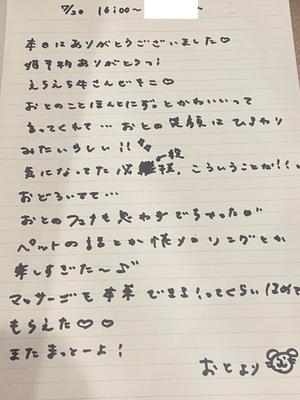 7/20 16:00〜
本日はありがとうございました♡
ありがとうっ!
えらえら牛さんどそこ♡
おとのことほんとにずっとかわいいって
言ってくれて… おとの笑顔はひまわり
みたいらしい!!
気になってた 殺 様、こういうことか!!
おどろいてて…
おとのフェチも思わずでちゃった
ペットの とか 恍 リングとか
楽しすぎた〜♪
マッサージも本業できる!ってくらいほめて
もらえた♡♡
またまっとーよ!
おとより